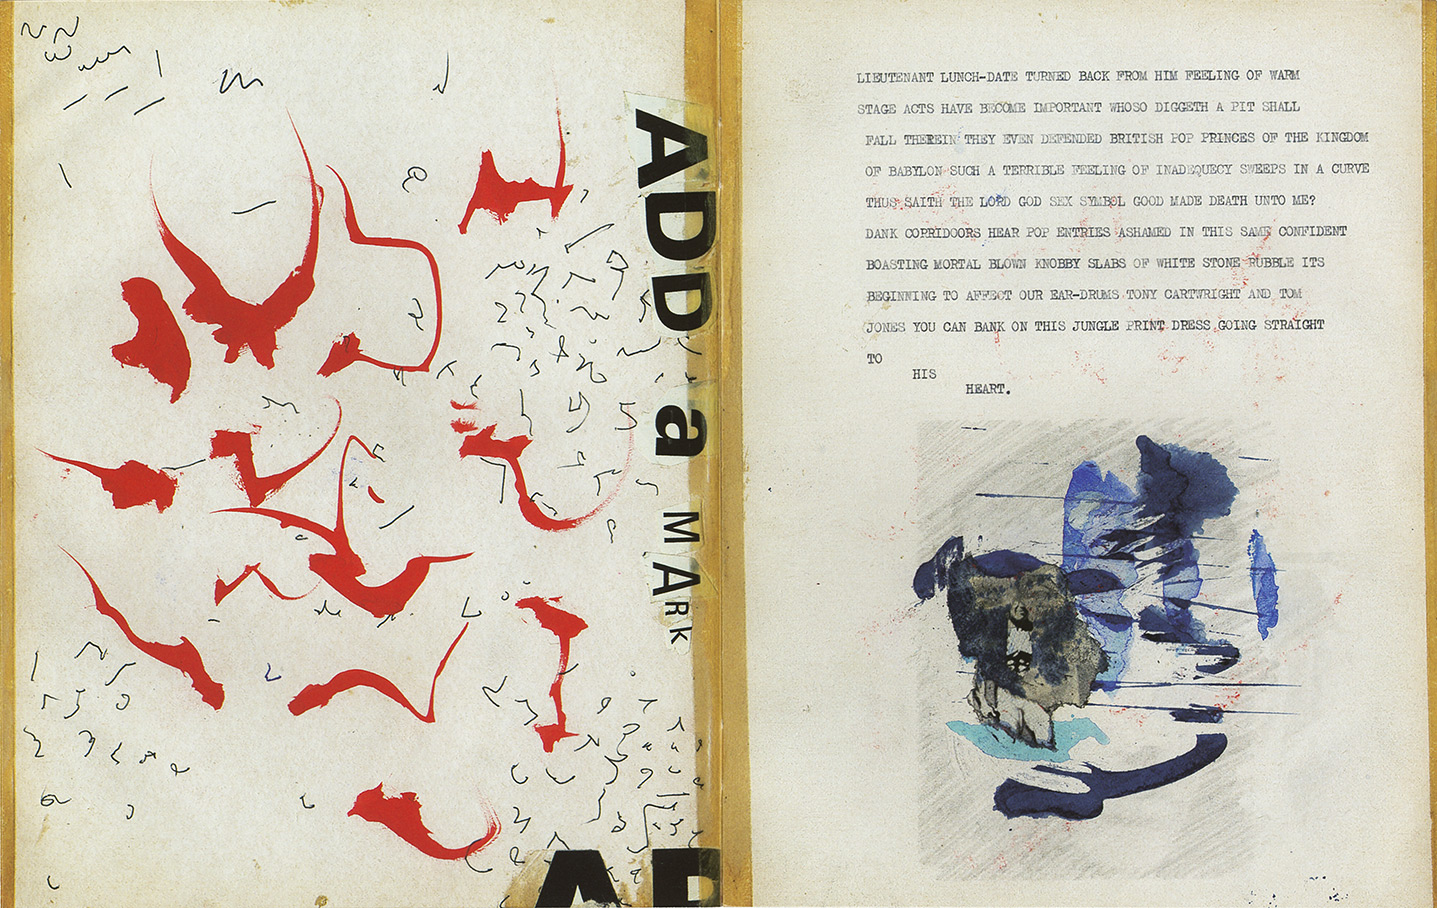 ADD a MARk
AD
LIEUTENANT LUNCH-DATE TURNED BACK FROM HIM FEELING OF WARM
STAGE ACTS HAVE BECOME IMPORTANT WHOSO DIGGETH A PIT SHALL
FALL THEREIN THEY EVEN DEFENDED BRITISH POP PRINCES OF THE KINGDOM
OF BABYLON SUCH A TERRIBLE FEELING OF INADEQUECY SWEEPS IN A CURVE
THUS SAITH THE LORD GOD SEX SYMBOL GOOD MADE DEATH UNTO ME?
DANK COPRIDOORS HEAR POP ENTRIES ASHAMED IN THIS SAME CONFIDENT
BOASTING MORTAL BLOWN KNOBBY SLABS OF WHITE STONE RUBBLE ITS
BEGINNING TO AFFECT OUR EAR-DRUMS TONY CARTWRIGHT AND TOM
JONES YOU CAN BANK ON THIS JUNGLE PRINT DRESS GOING STRAIGHT
TO
HIS
HEART.